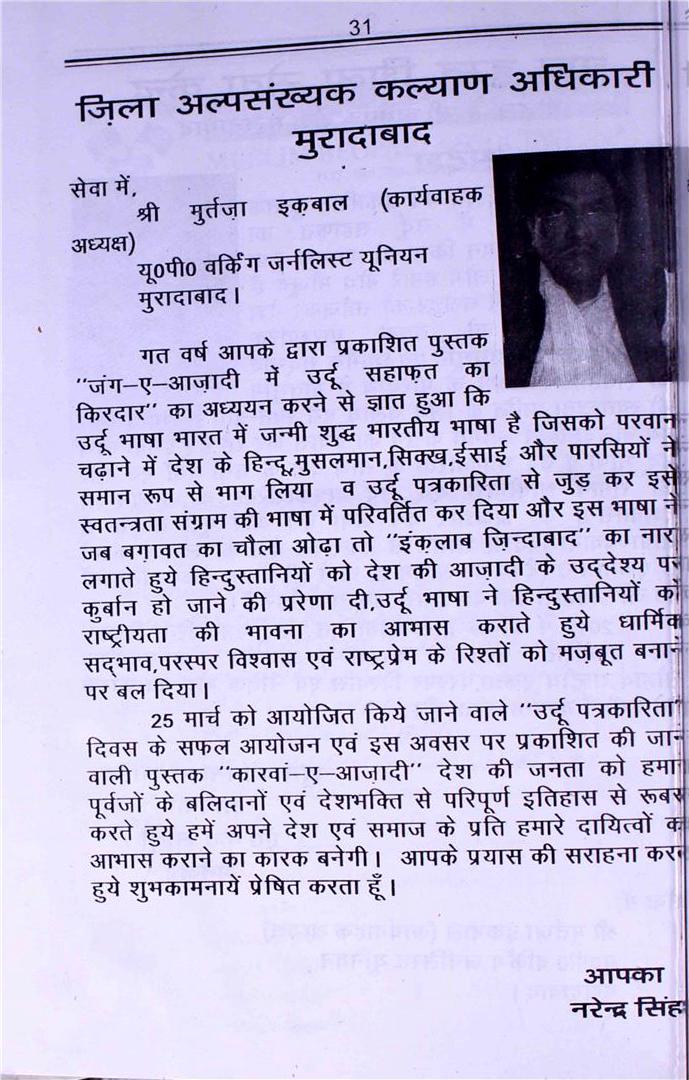 31
ज़िला अल्पसंख्यक कल्याण अधिकारी
मुरादाबाद
सेवा में,
श्री मुर्तज़ा इक़बाल (कार्यवाहक
अध्यक्ष)
यू0पी0 वर्किंग जर्नलिस्ट यूनियन
मुरादाबाद।
गत वर्ष आपके द्वारा प्रकाशित पुस्तक
"जंग-ए-आज़ादी में उर्दू सहाफ़त का
किरदार" का अध्ययन करने से ज्ञात हुआ कि
उर्दू भाषा भारत में जन्मी शुद्ध भारतीय भाषा है जिसको परवान
चढ़ाने में देश के हिन्दू,मुसलमान,सिक्ख,ईसाई और पारसियों ने
समान रूप से भाग लिया व उर्दू पत्रकारिता से जुड़ कर इसे
स्वतन्त्रता संग्राम की भाषा में परिवर्तित कर दिया और इस भाषा ने
जब बग़ावत का चौला ओढ़ा तो "इंक़लाब ज़िन्दाबाद" का नार
लगाते हुये हिन्दुस्तानियों को देश की आज़ादी के उद्देश्य पर
कुर्बान हो जाने की प्ररेणा दी,उर्दू भाषा ने हिन्दुस्तानियों को
राष्ट्रीयता की भावना का आभास कराते हुये धार्मिक
सद्भाव,परस्पर विश्वास एवं राष्ट्रप्रेम के रिश्तों को मज़बूत बनाने
पर बल दिया।
25 मार्च को आयोजित किये जाने वाले "उर्दू पत्रकारिता"
दिवस के सफल आयोजन एवं इस अवसर पर प्रकाशित की जान
वाली पुस्तक "कारवां-ए-आज़ादी" देश की जनता को हमा
पूर्वजों के बलिदानों एवं देशभक्ति से परिपूर्ण इतिहास से रूबर
करते हुये हमें अपने देश एवं समाज के प्रति हमारे दायित्वों क
आभास कराने का कारक बनेगी। आपके प्रयास की सराहना कर
हुये शुभकामनायें प्रेषित करता हूँ।
आपका
नरेन्द्र सिंह